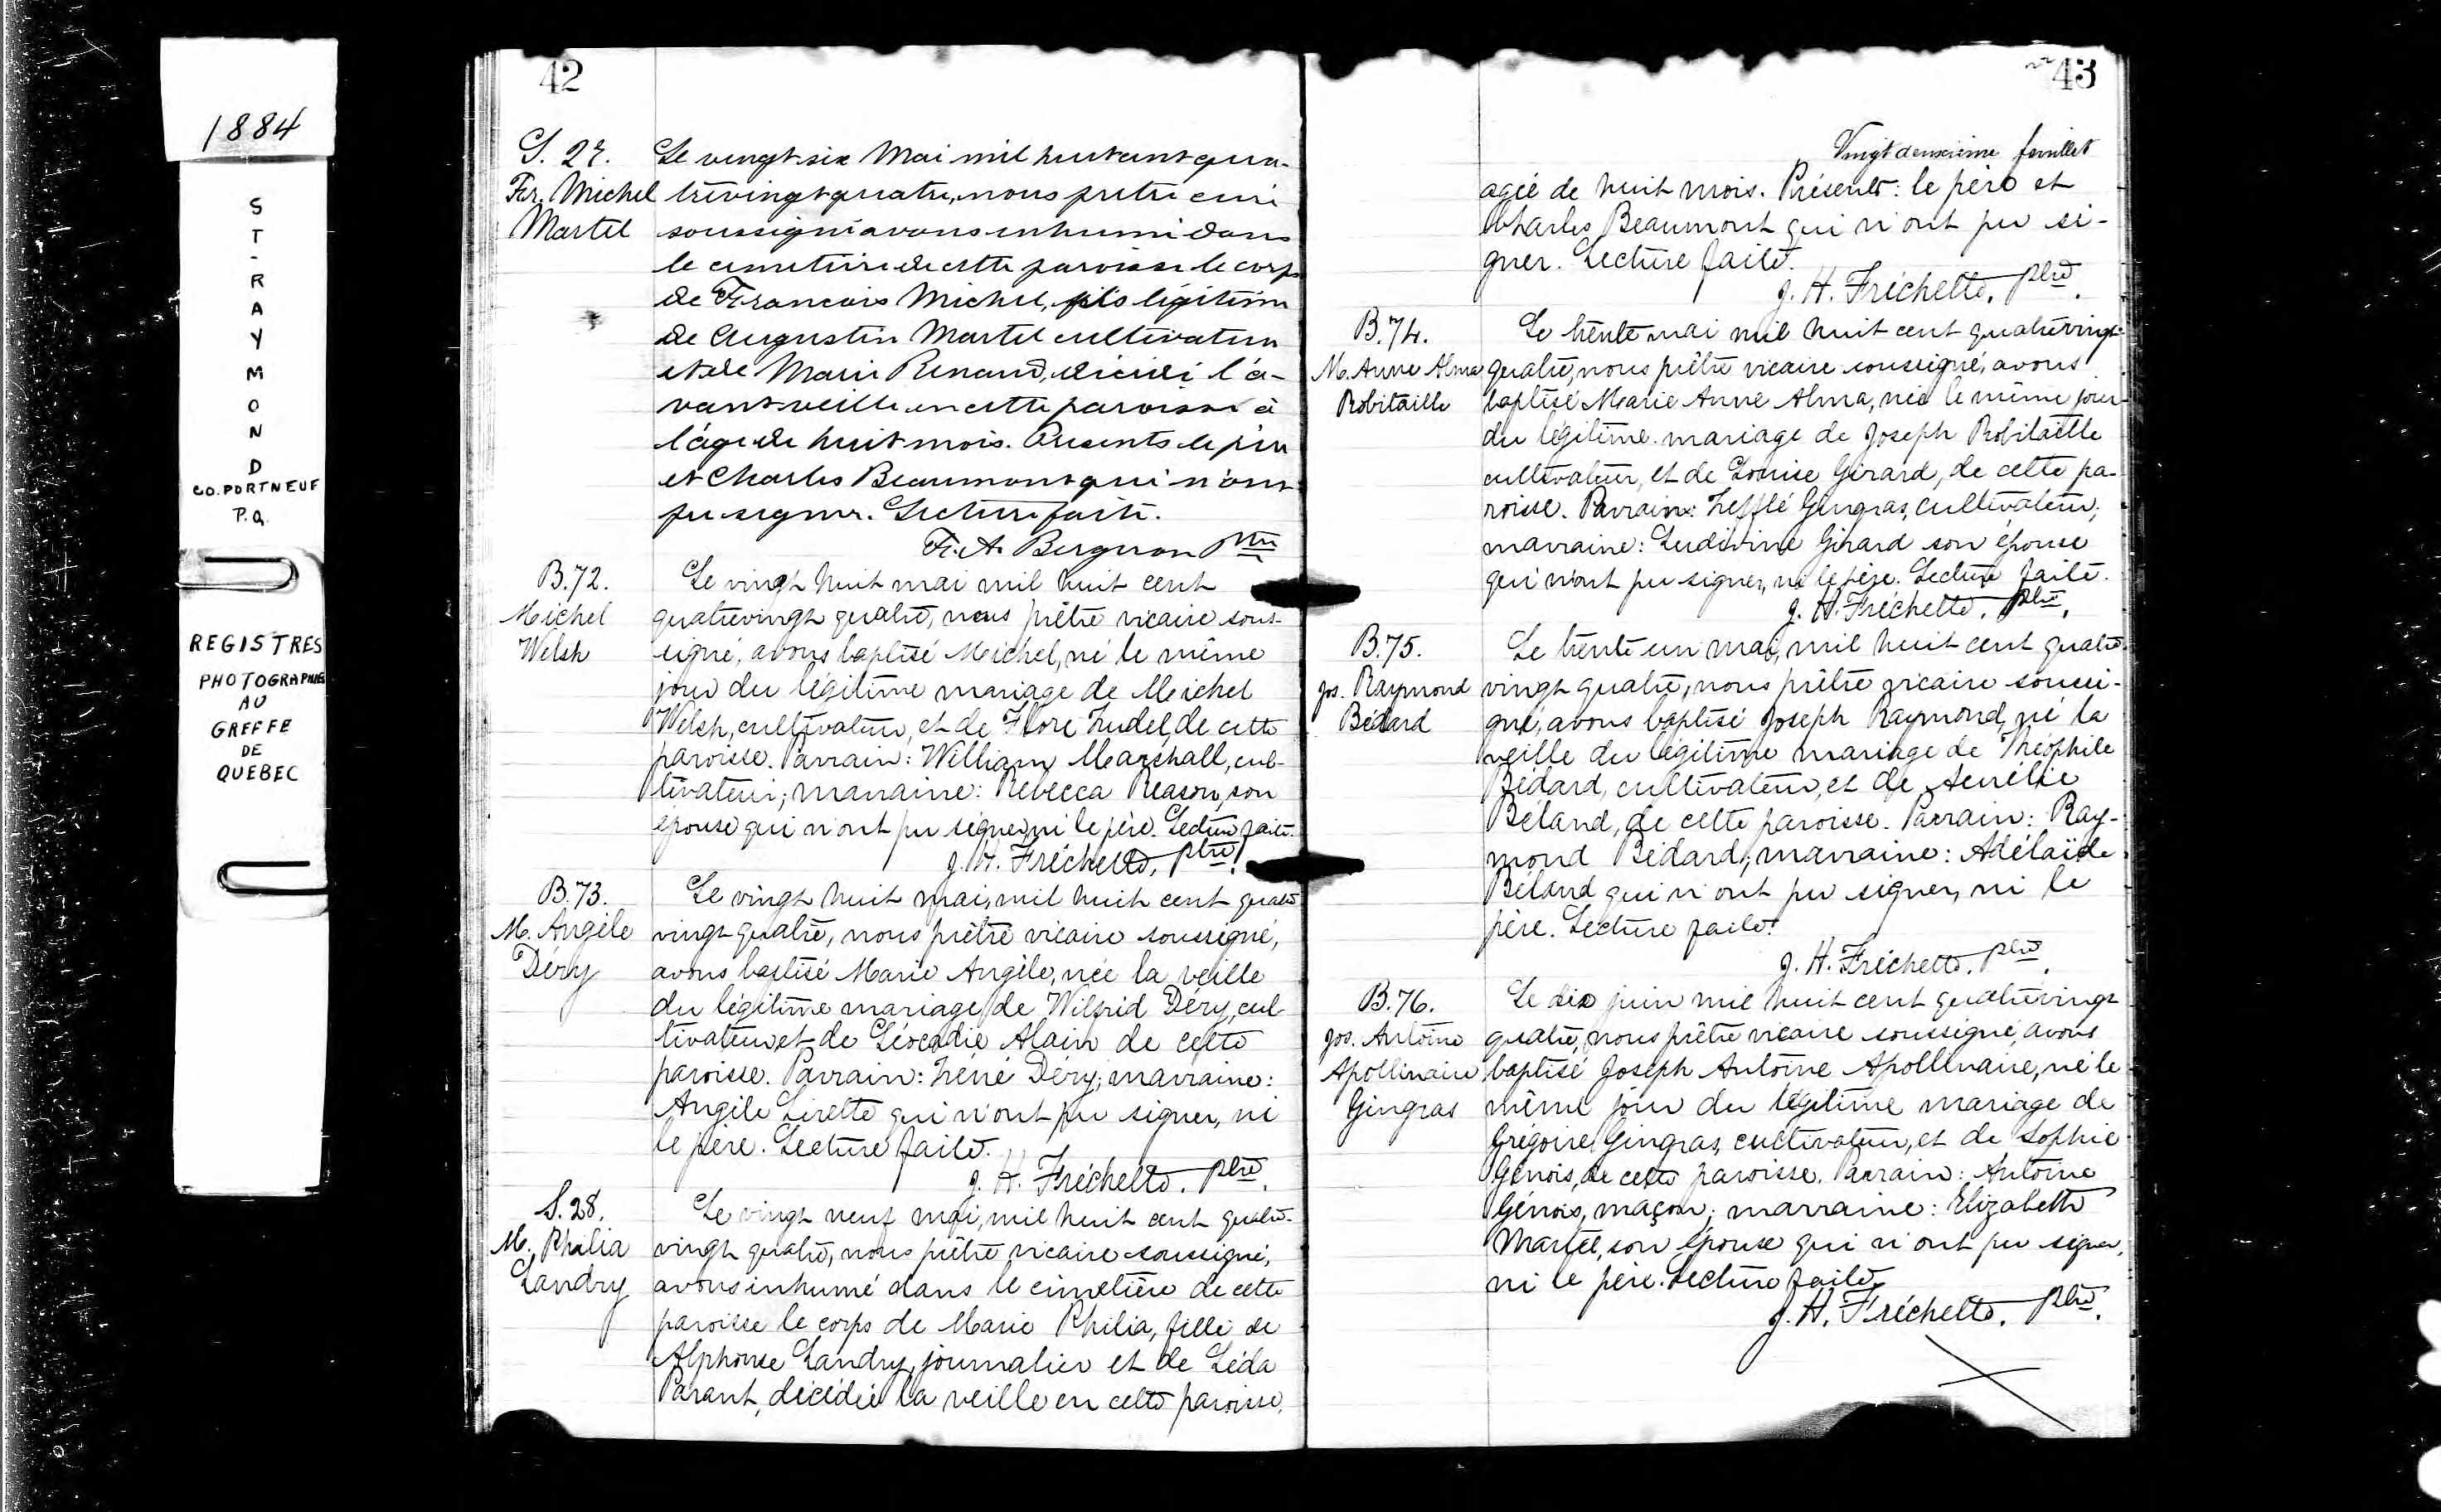 1884
ST-RAYMOND
CO. PORTNEUF
P.Q.
REGISTRES
PHOTOGRAPHIES
AU
GREFFE
DE
QUEBEC
42
S. 27.
Fr. Michel
Martel
Le vingt-six Mai mil huit cent qua-
trevingt quatre, nous prêtre curé
soussigné avons inhumé dans
le cimetière de cette paroisse le corps
de Francois Michel, fils légitime
de Augustin Martel cultivateur
et de Marie Renaud, décédé l'a-
vant-veille en cette paroisse à
l'âge de huit mois. Présents le père
et Charles Beaumont qui n'ont
pu signer. Lecture faite.
Fr. A. Bergeron Ptre
B.72.
Michel
Welsh
Le vingt huit mai mil huit cent
quatrevingt quatre, nous prêtre vicaire sous-
signé, avons baptisé Michel, né le même
jour du légitime mariage de Michel
Welsh, cultivateur, et de Flore Trudel, de cette
paroisse. Parrain: William Marshall, cul-
tivateur; marraine: Rebecca Reason, son
épouse qui n'ont pu signer, ni le père. Lecture faite.
J. H. Fréchette, Ptre.
B.73.
M. Angèle
Déry
Le vingt huit mai, mil huit cent quatre
vingt quatre, nous prêtre vicaire soussigné,
avons baptisé Marie Angèle, née la veille
du légitime mariage de Wilfrid Déry, cul-
tivateur et de Léocadie Alain de cette
paroisse. Parrain: Iréné Déry; marraine:
Angèle Lirette qui n'ont pu signer, ni
le père. Lecture faite.
J. H. Fréchette. Ptre.
S. 28.
M. Philia
Landry
Le vingt neuf mai, mil huit cent quatre-
vingt quatre, nous prêtre vicaire soussigné,
avons inhumé dans le cimetière de cette
paroisse le corps de Marie Philia, fille de
Alphonse Landry, journalier et de Léda
Parant, décédée la veille en cette paroisse,
43
Vingt deuxième feuillet
agée de huit mois. Présents: le père et
Charles Beaumont qui n'ont pu si-
gner. Lecture faite.
J. H. Fréchette. Ptre.
B.74.
M. Anne Alma
Robitaille
Le trente mai mil huit cent quatrevingt-
quatre, nous prêtre vicaire soussigné, avons
baptisé Marie Anne Alma, née le même jour
du légitime mariage de Joseph Robitaille
cultivateur, et de Louise Girard, de cette pa-
roisse. Parrain: Gingras, cultivateur;
marraine: Ludivine Girard son épouse
qui n'ont pu signer, ni le père. Lecture faite.
J. H. Fréchette. Ptre.
B.75.
Jos. Raymond
Bédard
Le trente un mai, mil huit cent quatre-
vingt quatre, nous prêtre vicaire soussi-
gné, avons baptisé Joseph Raymond, né la
veille du légitime mariage de Théophile
Bédard, cultivateur, et de Aurélie
Béland, de cette paroisse. Parrain: Ray-
mond Bédard; marraine: Adélaïde
Béland qui n'ont pu signer, ni le
père. Lecture faite.
J. H. Fréchette. Ptre.
B.76.
Jos. Antoine
Apollinaire
Gingras
Le six juin mil huit cent quatrevingt
quatre, nous prêtre vicaire soussigné, avons
baptisé Joseph Antoine Apollinaire, né le
même jour du légitime mariage de
Grégoire Gingras, cultivateur, et de Sophie
Génois, de cette paroisse. Parrain: Antoine
Génois, maçon; marraine: Elizabeth
Martel, son épouse qui n'ont pu signer,
ni le père. Lecture faite.
J. H. Fréchette. Ptre.